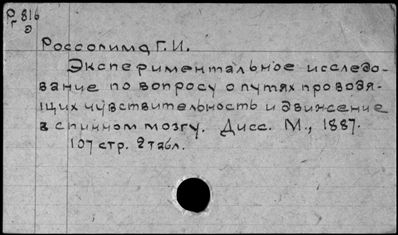 Р 816
г э
Россолимо, Г. И.
Экспериментальное исследо-
вание по вопросу о путях проводя-
щих чувствительность и движение
в спинном мозгу. Дисс. М., 1887.
107 стр. 2 табл.